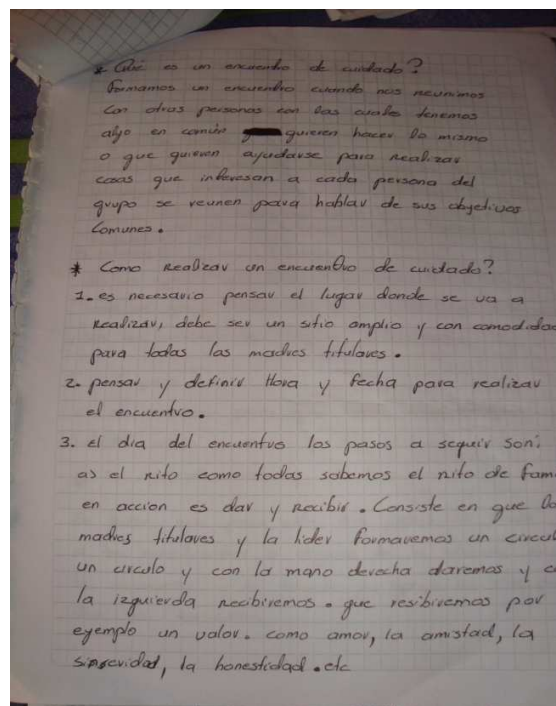 * Qué es un encuentro de cuidado?
Formamos un encuentro cuando nos reunimos
con otras personas con las cuales tenemos
algo en común quieren hacer lo mismo
o que quieren ayudarse para realizar
cosas que interesan a cada persona del
grupo se reunen para hablar de sus objetivos
comunes.
* Como Realizar un encuentro de cuidado?
1. es necesario pensar el lugar donde se va a
Realizar, debe ser un sitio amplio y con comodidad
para todas las madres titulares.
2. pensar y definir Hora y fecha para realizar
el encuentro.
3. el dia del encuentro los pasos a seguir son:
a) el rito como todas sabemos el rito de fam
en accion es dar y recibir. Consiste en que la
madres titulares y la lider formaremos un circul
un circulo y con la mano derecha daremos y c
la izquierda recibiremos. que resibiremos por
eyemplo un valor. como amor, la amistad, la
sinseridad, la honestidad. etc